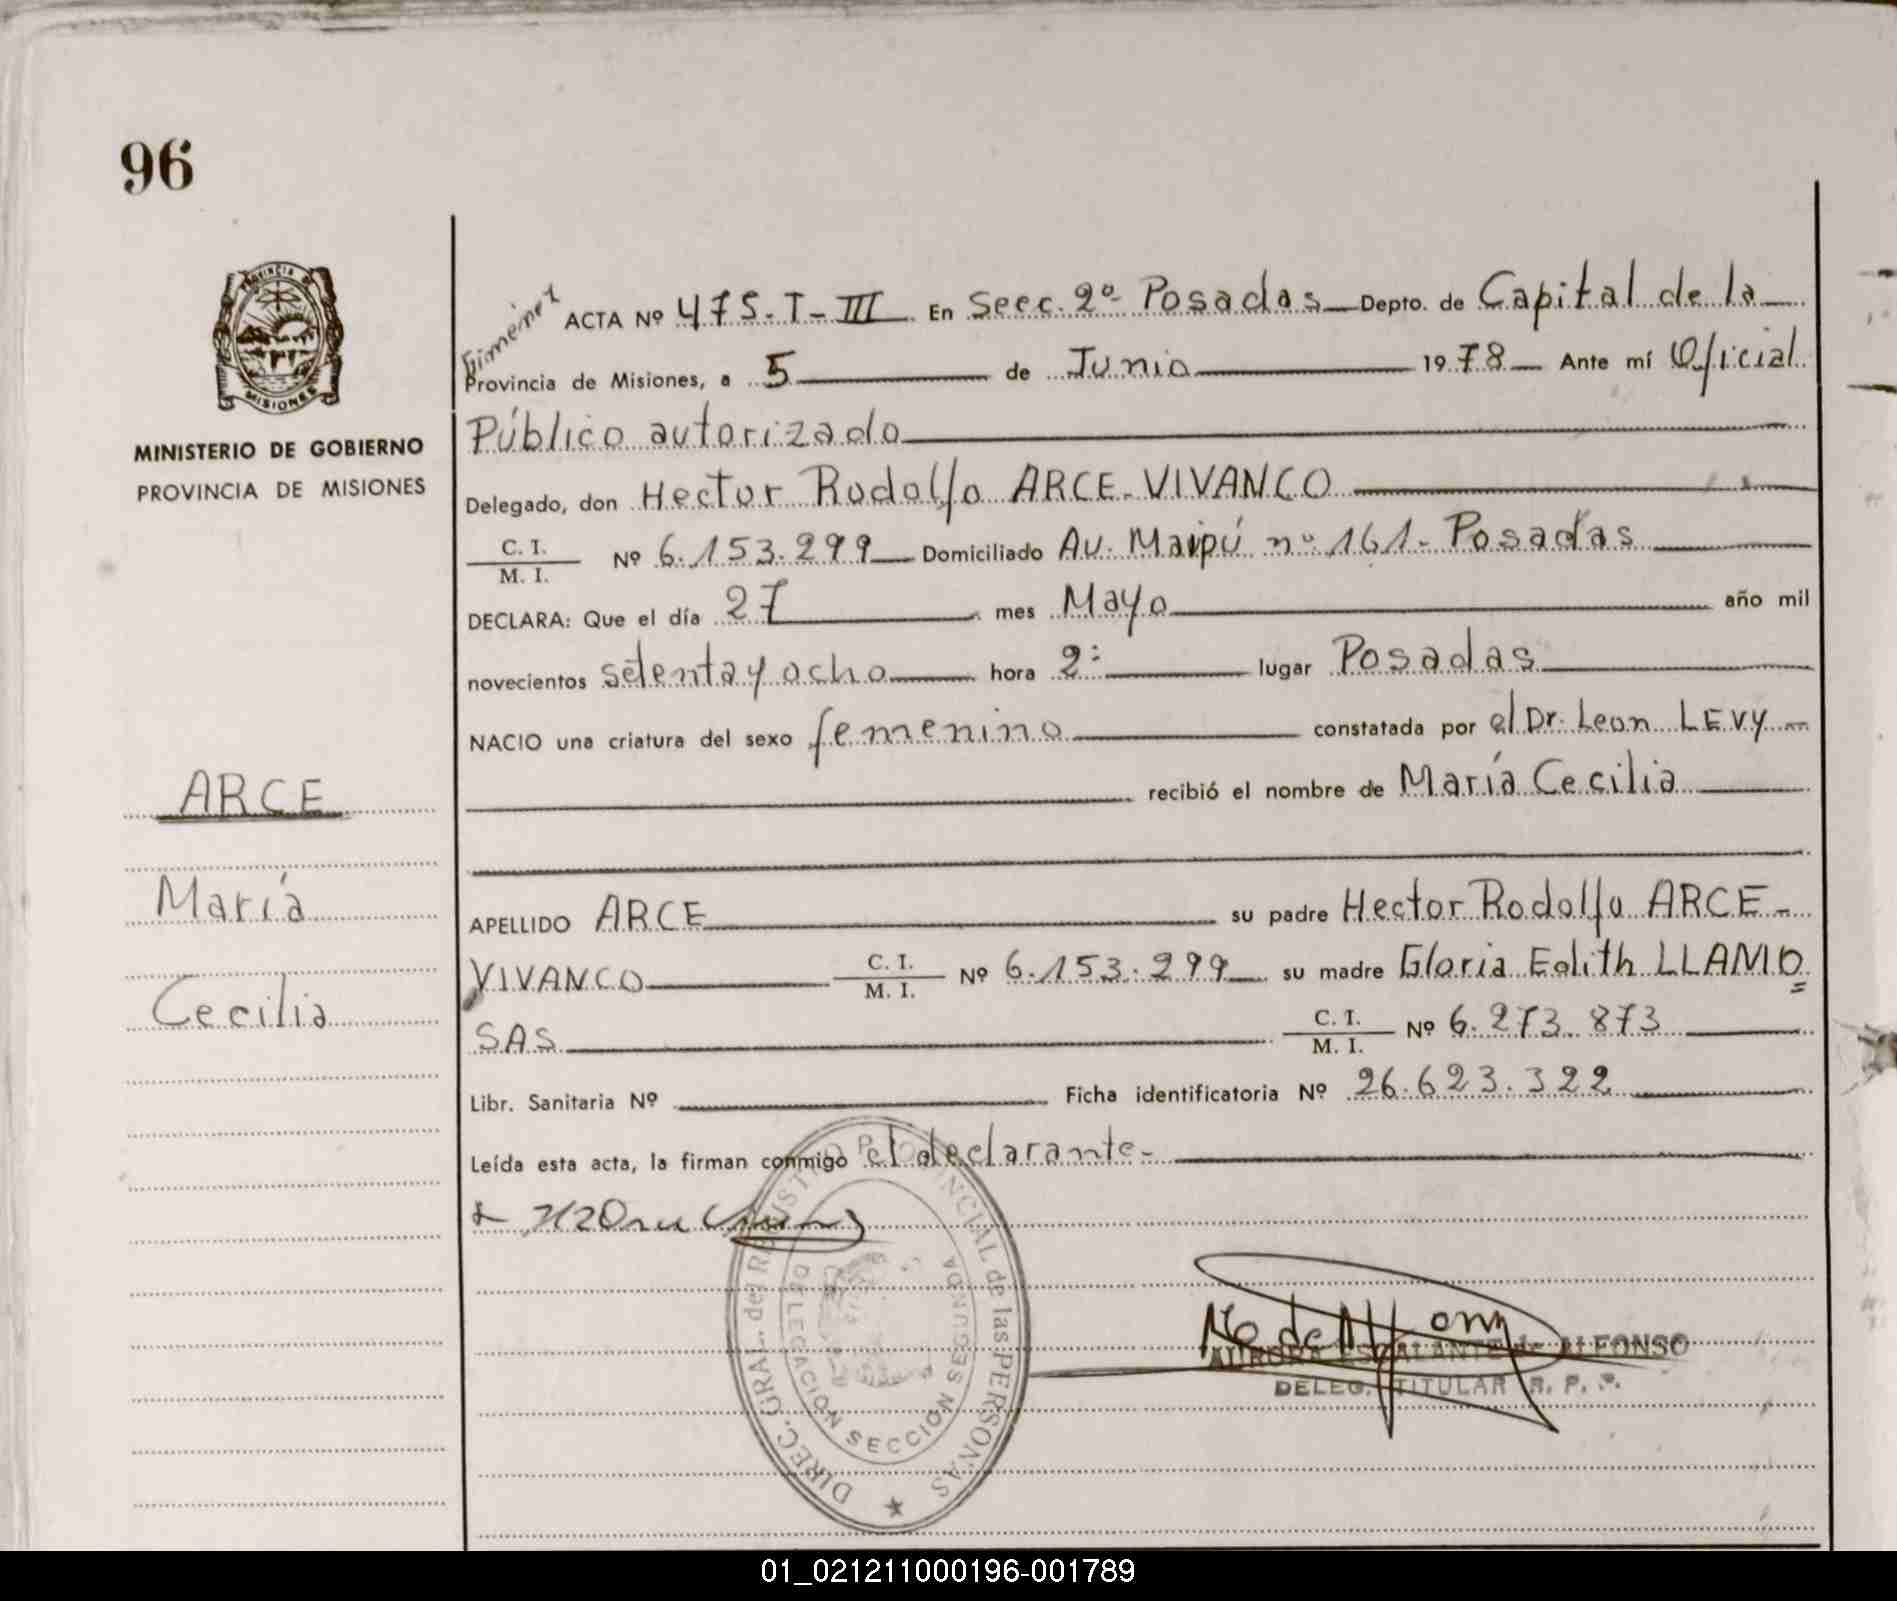 96
MINISTERIO DE GOBIERNO
PROVINCIA DE MISIONES
ARCE
María
Cecilia
Gimenez
ACTA Nº 475.T-III En Secc. 2º Posadas Depto. de Capital de la
Provincia de Misiones, a 5 de Junio 1978 Ante mí Oficial
Público autorizado
Delegado, don Hector Rodolfo ARCE-VIVANCO
C. I.
M. I. Nº 6.153.299 Domiciliado Av. Maipú nº 161- Posadas
DECLARA: Que el día 27 mes Mayo año mil
novecientos setenta y ocho hora 2: lugar Posadas
NACIO una criatura del sexo femenino constatada por el Dr. Leon LEVY
recibió el nombre de María Cecilia
APELLIDO ARCE su padre Hector Rodolfo ARCE-
VIVANCO C. I.
M. I. Nº 6.153.299 su madre Gloria Edith LLAMO=
SAS C. I.
M. I. Nº 6.273.873
Libr. Sanitaria Nº Ficha identificatoria Nº 26.623.322
Leída esta acta, la firman conmigo el declarante-
DIREC. GRAL. del REGISTRO PROVINCIAL de las PERSONAS
DELEGACION SECCION SEGUNDA
AURORA ESCALANTE de ALFONSO
DELEG. TITULAR R. P. P.
01_021211000196-001789